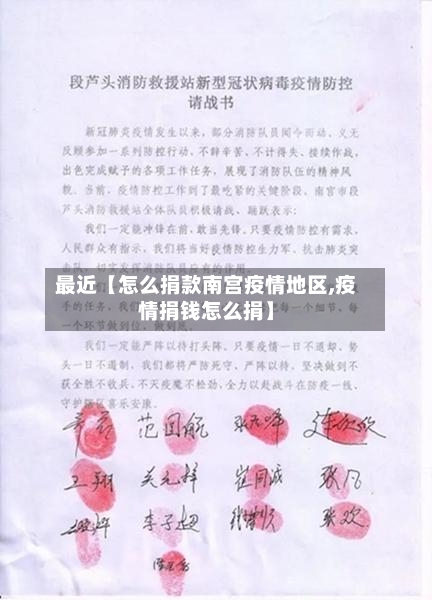 段芦头消防救援站新型冠状病毒疫情防控
请战书
新冠肺炎疫情发生以来，部分消防队员闻令而动、义无
反顾参加一系列防控行动，不辞辛苦、不计得失、接续作战，
出色完成赋予的各项工作任务，展现了消防队伍的精神风
貌。当前，疫情防控工作到了最吃紧的关键阶段，南宫市段
芦头消防救援站全体队员积极请战、踊跃表示：
我们一定能冲锋在前，敢当先锋，只要疫情防控有需求，
人民群众有指示，我们将当好疫情防控生力军、抗击肺炎突
最近【怎么捐款南宫疫情地区,疫
情捐钱怎么捐】
手的任务，我们
一个细节、每
一个环节做到位、做到底
我们一定能严阵以待打头阵。只要疫情一日不退却、势
头一日不遏制，我们都将严防死守、严阵以待，坚决做到不
获全胜不收兵，不灭疫魔不松劲，全力以赴战斗在防疫一线、
守护辖区喜乐安康。
范国航
王翔 关元梓 崔同成 张凡
李子超 张欢